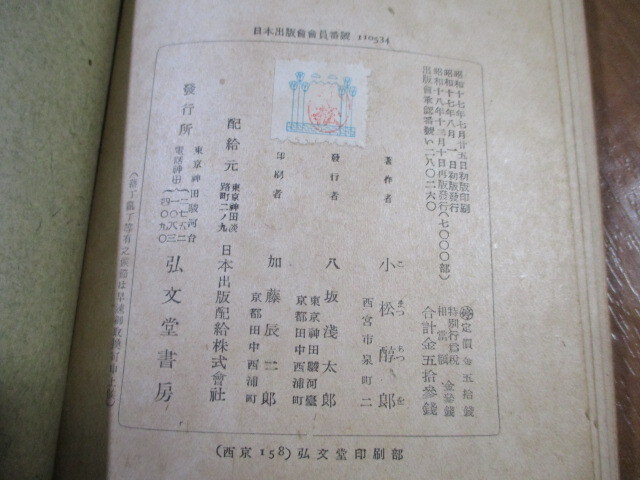 日本出版會會員番號 110534
昭和十七年七月廿五日初版印刷
昭和十七年八月一日初版發行
昭和十八年十二月十日再版發行(七〇〇〇部)
出版會承認番號い二八〇二六〇
定價金五拾錢
特別行爲稅
相當額 金參錢
合計金五拾參錢
著作者 小松醇郎
こ まつ あつ を
西宮市泉町二
發行者 八坂淺太郎
東京神田駿河臺
京都田中西浦町
印刷者 加藤辰二郎
京都田中西浦町
配給元 東京神田淡路町二ノ九 日本出版配給株式會社
發行所 東京神田駿河台
電話神田
弘文堂書房
(西京158)弘文堂印刷部